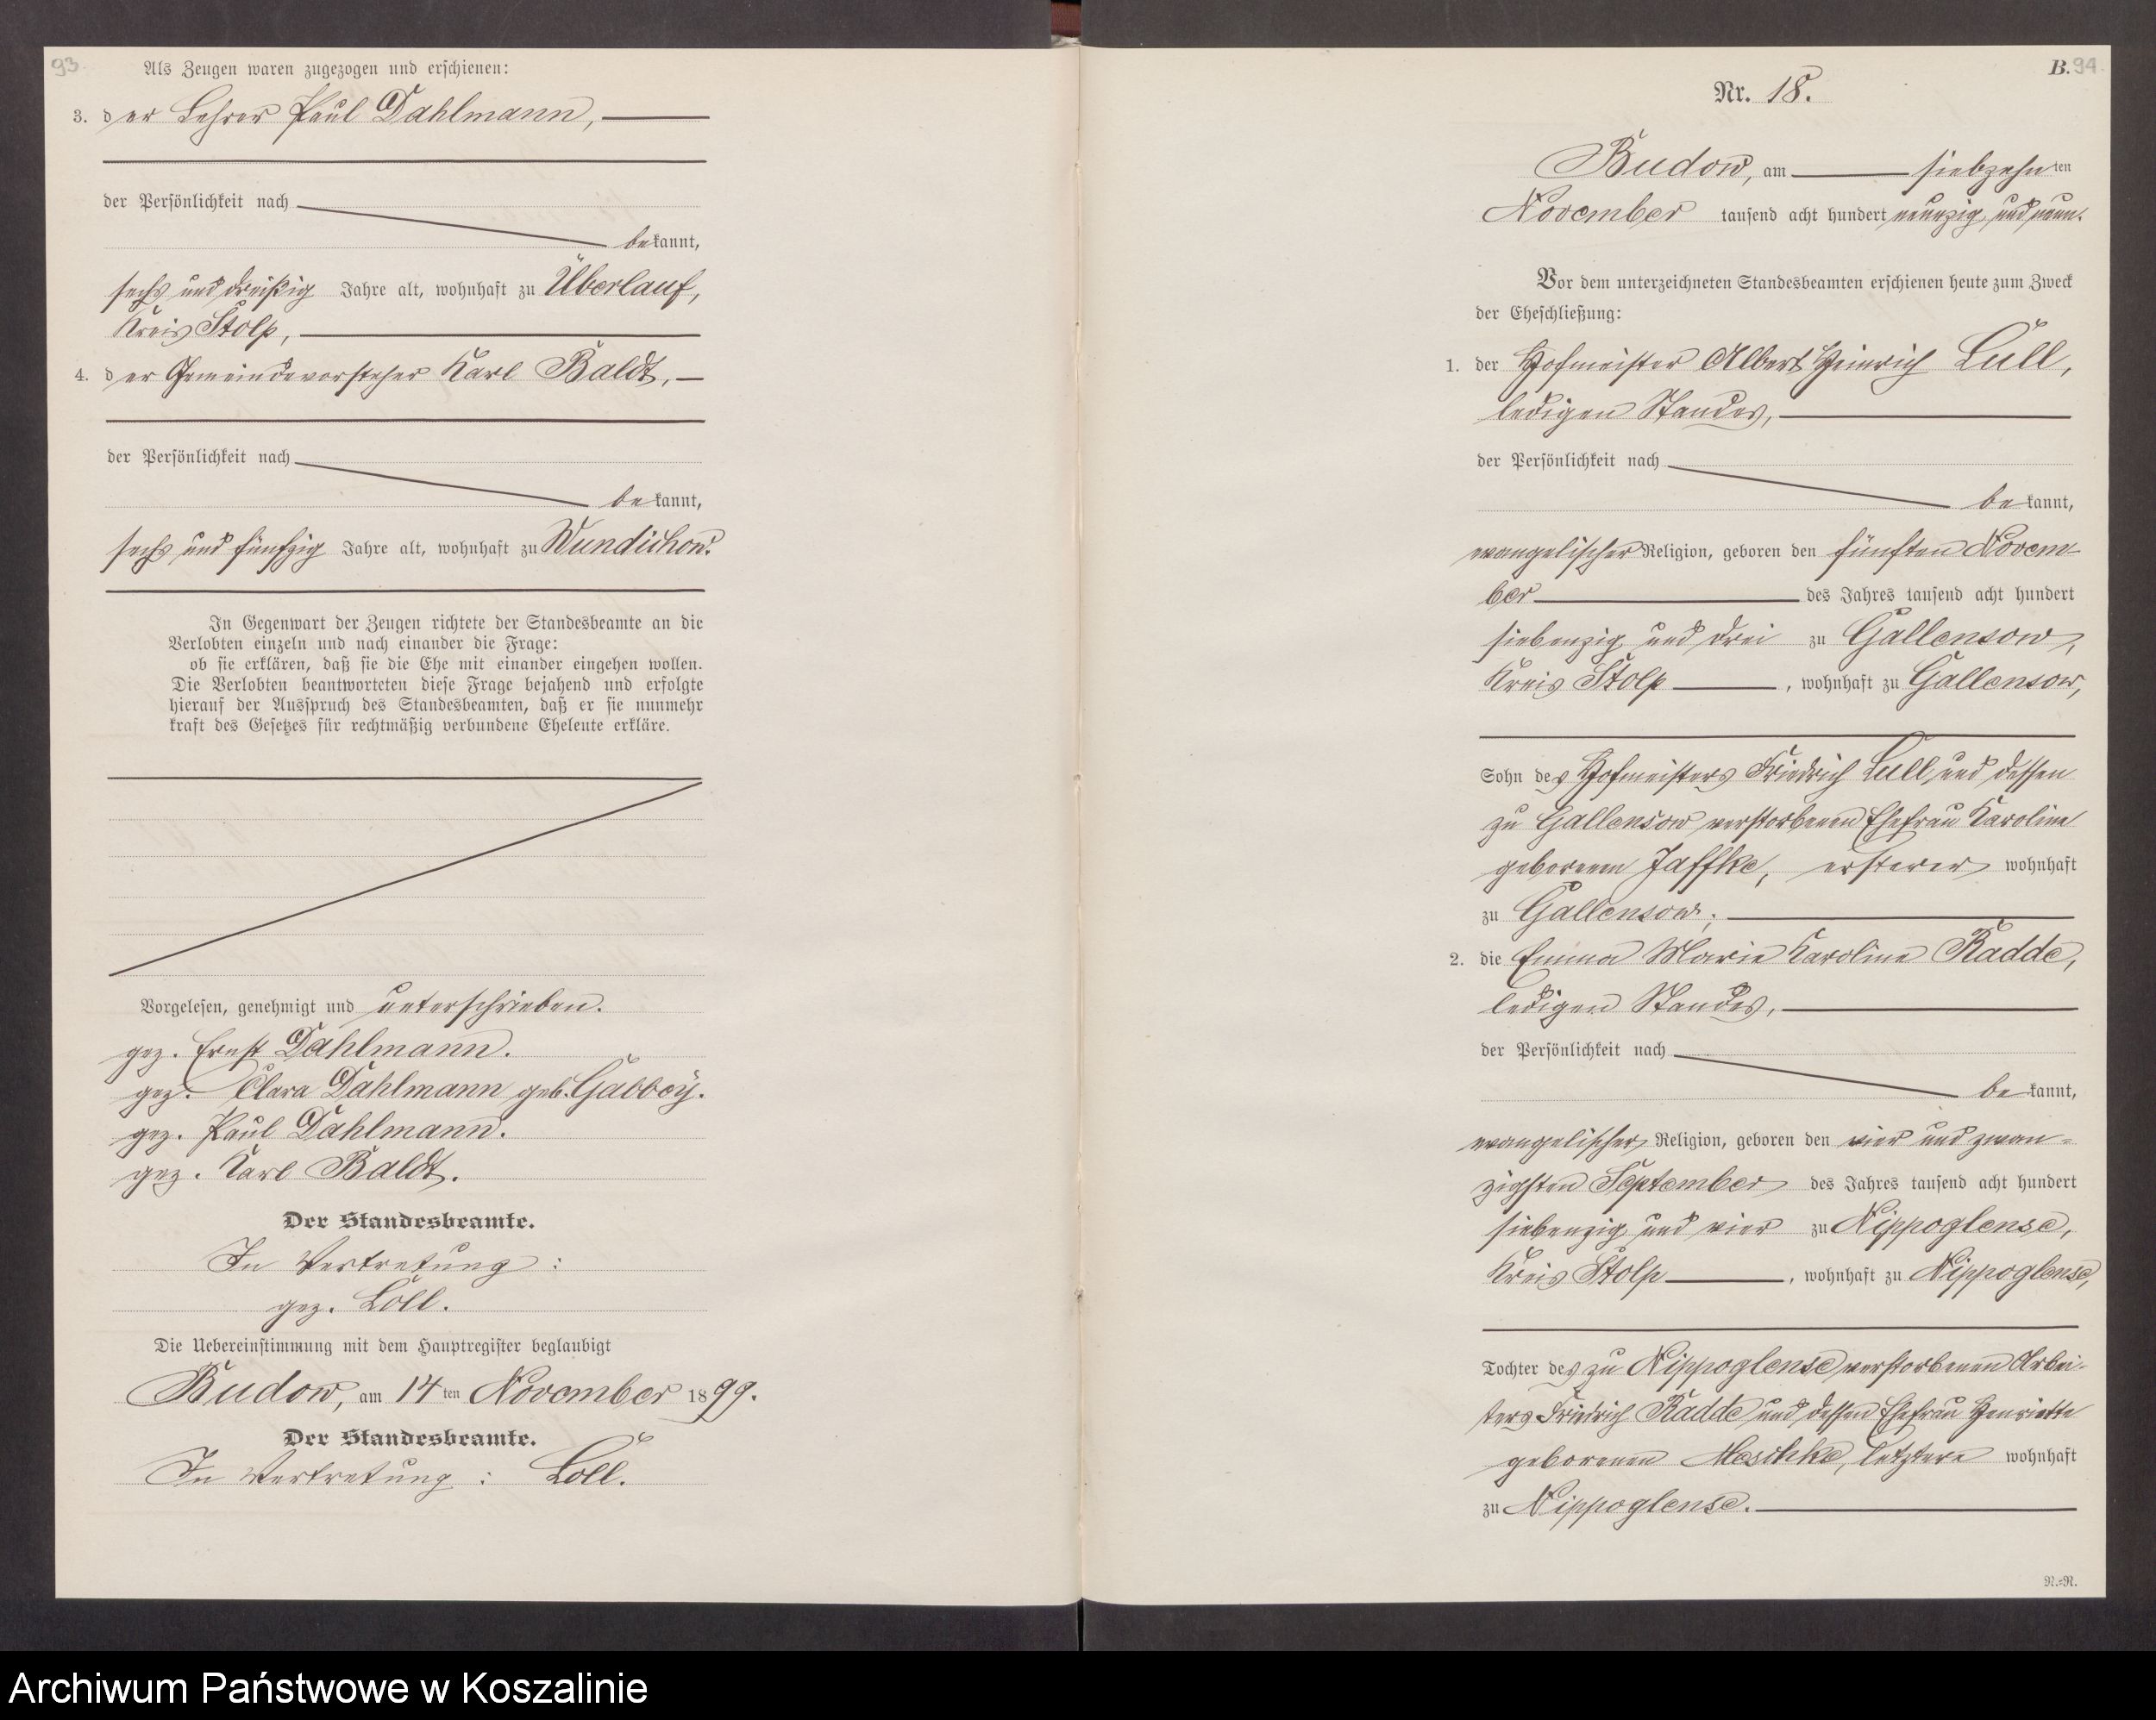 93.
Als Zeugen waren zugezogen und erschienen:
3. der Lehrer Paul Dahlmann,
der Persönlichkeit nach
bekannt,
sechs und dreißig Jahre alt, wohnhaft zu Überlauf,
Kreis Stolp,
4. der Gemeindevorsteher Karl Baldt,
der Persönlichkeit nach
bekannt,
sechs und fünfzig Jahre alt, wohnhaft zu Wundichow.
In Gegenwart der Zeugen richtete der Standesbeamte an die
Verlobten einzeln und nach einander die Frage:
ob sie erklären, daß sie die Ehe mit einander eingehen wollen.
Die Verlobten beantworteten diese Frage bejahend und erfolgte
hierauf der Ausspruch des Standesbeamten, daß er sie nunmehr
kraft des Gesetzes für rechtmäßig verbundene Eheleute erkläre.
Vorgelesen, genehmigt und unterschrieben.
gez. Ernst Dahlmann.
gez. Clara Dahlmann geb. Gabbey.
gez. Paul Dahlmann.
gez. Karl Baldt.
Der Standesbeamte.
In Vertretung:
gez. Löll.
Die Uebereinstimmung mit dem Hauptregister beglaubigt
Budow, am 14ten November 1899.
Der Standesbeamte.
In Vertretung: Löll.
B. 94.
Nr. 18.
Budow, am siebzehnten
November tausend acht hundert neunzig und neun.
Vor dem unterzeichneten Standesbeamten erschienen heute zum Zweck
der Eheschließung:
1. der Hofmeister Albert Heinrich Lull,
ledigen Standes,
der Persönlichkeit nach
bekannt,
evangelischer Religion, geboren den fünften Novem-
ber des Jahres tausend acht hundert
siebenzig und drei zu Gallensow,
Kreis Stolp, wohnhaft zu Gallensow,
Sohn des Hofmeisters Friedrich Lull und dessen
zu Gallensow verstorbenen Ehefrau Karoline
geborenen Jaffke, ersterer wohnhaft
zu Gallensow;
2. die Emma Marie Karoline Radde,
ledigen Standes,
der Persönlichkeit nach
bekannt,
evangelischer Religion, geboren den vier und zwan-
zigsten September des Jahres tausend acht hundert
siebenzig und vier zu Nippoglense,
Kreis Stolp, wohnhaft zu Nippoglense,
Tochter des zu Nippoglense verstorbenen Arbei-
ters Friedrich Radde und dessen Ehefrau Henriette
geborenen Meschke, letztere wohnhaft
zu Nippoglense.
N.=N.
Archiwum Państwowe w Koszalinie